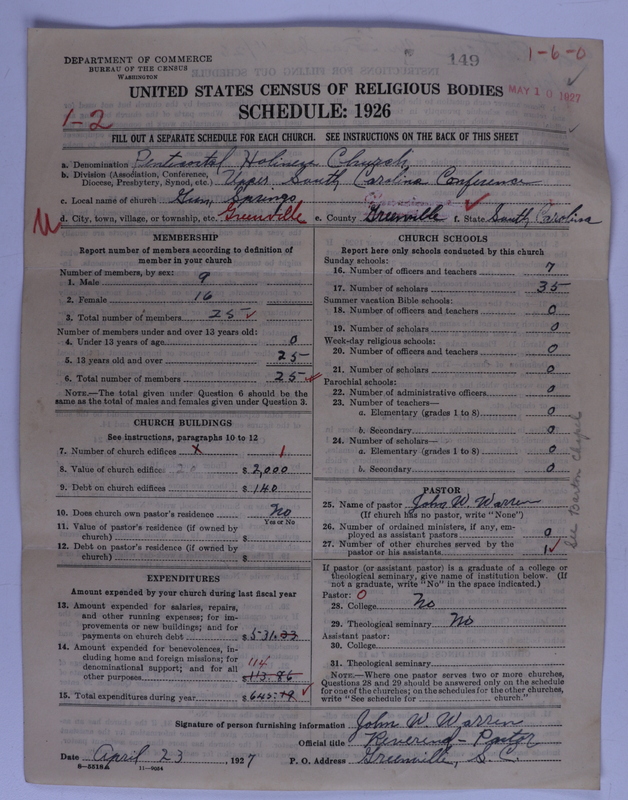 149
1-6-0
DEPARTMENT OF COMMERCE
BUREAU OF THE CENSUS
WASHINGTON
UNITED STATES CENSUS OF RELIGIOUS BODIES
MAY 10 1927
SCHEDULE: 1926
1-2
FILL OUT A SEPARATE SCHEDULE FOR EACH CHURCH. SEE INSTRUCTIONS ON THE BACK OF THIS SHEET
a. Denomination Pentecostal Holiness Church
b. Division (Association, Conference, Diocese, Presbytery, Synod, etc.) Upper South Carolina Conference
c. Local name of church Springs
d. City, town, village, or township, etc. Greenville e. County Greenville f. State South Carolina
MEMBERSHIP
Report number of members according to definition of member in your church
Number of members, by sex:
1. Male 9
2. Female 16
3. Total number of members 25
Number of members under and over 13 years old:
4. Under 13 years of age 0
5. 13 years old and over 25
6. Total number of members 25
NOTE.—The total given under Question 6 should be the same as the total of males and females given under Question 3.
CHURCH BUILDINGS
See instructions, paragraphs 10 to 12
7. Number of church edifices x 1
8. Value of church edifices 20 $ 2,000
9. Debt on church edifices $ 140
10. Does church own pastor's residence? No
Yes or No
11. Value of pastor's residence (if owned by church) $
12. Debt on pastor's residence (if owned by church) $
EXPENDITURES
Amount expended by your church during last fiscal year
13. Amount expended for salaries, repairs, and other running expenses; for improvements or new buildings; and for payments on church debt $ 531.33
14. Amount expended for benevolences, including home and foreign missions; for denominational support; and for all other purposes 114 $ 113.86
15. Total expenditures during year $ 645.19
CHURCH SCHOOLS
Report here only schools conducted by this church
Sunday schools:
16. Number of officers and teachers 7
17. Number of scholars 35
Summer vacation Bible schools:
18. Number of officers and teachers 0
19. Number of scholars 0
Week-day religious schools:
20. Number of officers and teachers 0
21. Number of scholars 0
Parochial schools:
22. Number of administrative officers 0
23. Number of teachers—
a. Elementary (grades 1 to 8) 0
b. Secondary 0
24. Number of scholars—
a. Elementary (grades 1 to 8) 0
b. Secondary 0
See Barton Chapel
PASTOR
25. Name of pastor John W. Warren
(If church has no pastor, write "None")
26. Number of ordained ministers, if any, employed as assistant pastors 0
27. Number of other churches served by the pastor or his assistants 1
If pastor (or assistant pastor) is a graduate of a college or theological seminary, give name of institution below. (If not a graduate, write "No" in the space indicated.)
Pastor: 0
28. College No
29. Theological seminary No
Assistant pastor:
30. College
31. Theological seminary
NOTE.—Where one pastor serves two or more churches, Questions 28 and 29 should be answered only on the schedule for one of the churches; on the schedules for the other churches, write "See schedule for church."
Signature of person furnishing information John W. Warren
Official title Reverend - Pastor
Date April 23, 1927 P. O. Address Greenville, S. C.
8-5318A 11-9034